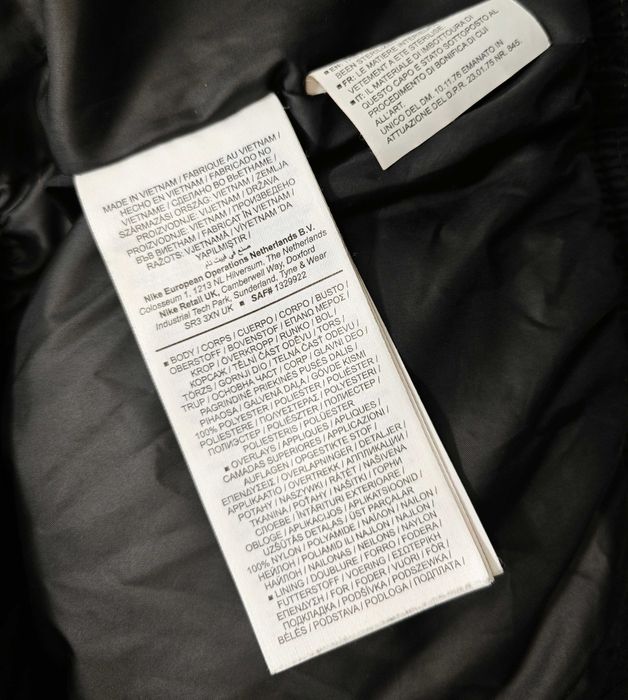 BEEN STERI
■ FR: LE MATIERE INTER
VETEMENT A ETE STERILISE
■ IT: IL MATERIALE DI IMBOTTOURA DI
QUESTO CAPO È STATO SOTTOPOSTO AL
PROCEDIMENTO DI BONIFICA DI CUI
ALL'ART.
UNICO DEL DM. 10.11.76 EMANATO IN
ATTUAZIONE DEL D.P.R. 23.01.75 NR. 845.
MADE IN VIETNAM / FABRIQUE AU VIETNAM /
HECHO EN VIETNAM / FABRICADO NO
VIETNAME / СДЕЛАНО ВО ВЬЕТНАМЕ /
SZÁRMAZÁSI ORSZÁG: VIETNAM / ZEMLJA
PROIZVODNJE: VIJETNAM / DRŽAVA
PROIZVODNJE: VIETNAM / ПРОИЗВЕДЕНО
ВЪВ ВИЕТНАМ / FABRICAT ÎN VIETNAM /
RAŽOTS: VJETNAMĀ / VİYETNAM DA
YAPILMIŞTIR /
صنع في فيت نام
Nike European Operations Netherlands B.V.
Colosseum 1, 1213 NL Hilversum, The Netherlands
Nike Retail UK, Camberwell Way, Doxford
Industrial Tech Park, Sunderland, Tyne & Wear
SR3 3XN UK ■ SAF# 1329922
■ BODY / CORPS / CUERPO / CORPO / BUSTO /
OBERSTOFF / BOVENSTOF / ΕΠΑΝΩ ΜΕΡΟΣ /
KROP / ÖVERKROPP / RUNKO / BOL /
КОРСАЖ / TĚLNÍ ČÁST ODĚVU / TORS /
TÖRZS / GORNJI DIO / TELNÁ ČASŤ ODEVU /
TRUP / ОСНОВНА ЧАСТ / CORP / GLAVNI DEO /
PAGRINDINĖ PRIEKINĖS PUSĖS DALIS /
PIHAOSA / GALVENĀ DAĻA / GÖVDE KISMI
100% POLYESTER / POLIESTER / POLYESTERI /
POLIESTERE / ΠΟΛΥΕΣΤΕΡΑΣ / POLIESTER /
ПОЛИЭСТЕР / POLIÉSZTER / ПОЛИЕСТЕР /
POLIESTERIS / POLÜESTER
■ OVERLAYS / APPLIQUES / APLIQUES /
CAMADAS SUPERIORES / APPLICAZIONI /
AUFLAGEN / OPGESTIKTE STOF /
ΕΠΕΝΔΥΣΕΙΣ / OVERLAPNINGER / DETALJER /
APPLIKAATIO / OVERTREKK / АППЛИКАЦИИ /
POTAHY / NASZYWKI / RÁTÉT / NAŠIVENA
TKANINA / POŤAHY / NAŠITKI / ГОРНИ
СЛОЕВЕ / INTARITURI EXTERIOARE /
OBLOGE / APLIKACIJOS / APLIKATSIOONID /
UZŠŪTAS DETAĻAS / ÜST PARÇALAR
100% NYLON / POLYAMIDE / NÁILON / NAJLON /
НЕЙЛОН / POLIAMID ILI NAJLON / NYLON /
НАЙЛОН / NAILONAS / NEILONS / NAYLON
■ LINING / DOUBLURE / FORRO / FODERA /
FUTTERSTOFF / VOERING / ΕΣΩΤΕΡΙΚΗ
ΕΠΕΝΔΥΣΗ / FOR / FODER / VUORI / FÔR /
ПОДКЛАДКА / PODŠÍVKA / PODSZEWKA /
BÉLÉS / PODSTAVA / PODLOGA / ПОДПЛАТА /